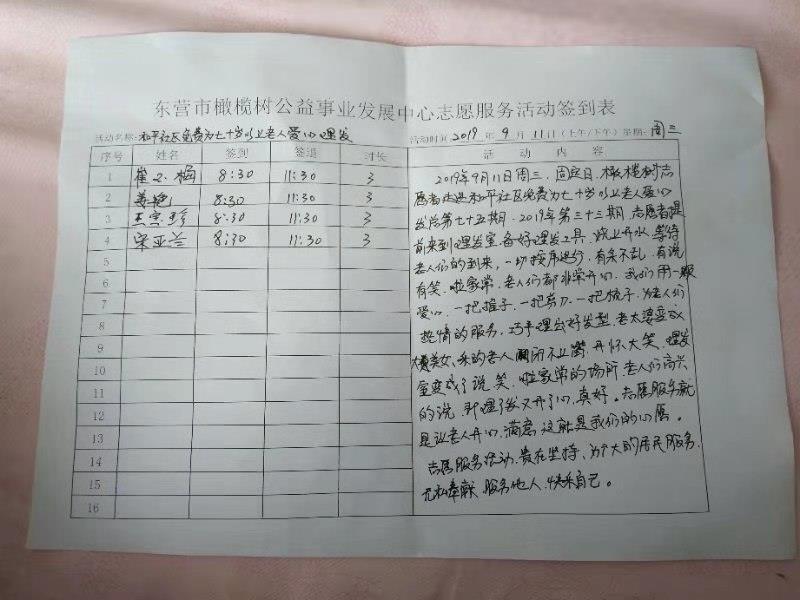 东营市橄榄树公益事业发展中心志愿服务活动签到表
活动名称:和平社区免费为七十岁以上老人爱心理发 活动时间2019年9月11日(上午/下午)星期:周三
序号 姓名 签到 签退 时长 活动内容
1 崔玉梅 8:30 11:30 3
2 姜艳 8:30 11:30 3
3 王宗珍 8:30 11:30 3
4 宋亚兰 8:30 11:30 3
5
6
7
8
9
10
11
12
13
14
15
16
2019年9月11日周三,固定日,橄榄树志
愿者走进和平社区免费为七十岁以上老人爱心
发总第七十五期,2019年第三十三期,志愿者提
前来到理发室,备好理发工具,烧上开水,等待
老人们的到来,一切按序进行,有条不乱,有说
有笑,啦家常,老人们都非常开心,我们用一颗
爱心,一把推子,一把剪刀,一把梳子,为老人们
热情的服务,巧手理出好发型,老太婆变成
大美女,来的老人都闭不上嘴,开怀大笑,理发
室变成了说笑,啦家常的场所,老人们高兴
的说,即理了发又开了心,真好。志愿服务就
是让老人开心,满意,这就是我们的心愿。
志愿服务活动,贵在坚持,为广大的居民服务,
无私奉献,服务他人,快乐自己。